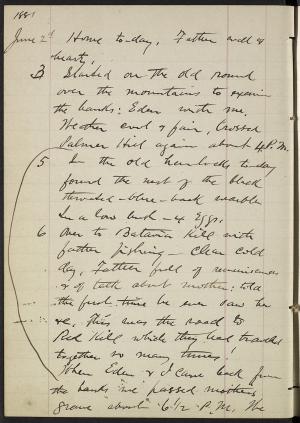 1881
June 2d Home to-day, Father well &
hearty,
3 Started on the old round
over the mountains to examine
the banks: Eden with me.
Weather cool & fair, Crossed
Palmer Hill again about 4 P.M.
5 In the old hemlocks to-day
found the nest of the black
throated-blue-back warbler
In a low bush - 4 Eggs.
6 Over to Batavia Kill with
father fishing - Clear cold
day, Father full of reminiscences
& of talk about mother: told
the first time he ever saw her
&c. This was the road to
Red Kill which they had traveled
together so many times!
When Eden & I came back from
the banks we passed mothers
grave about 6 1/2 P.M. The